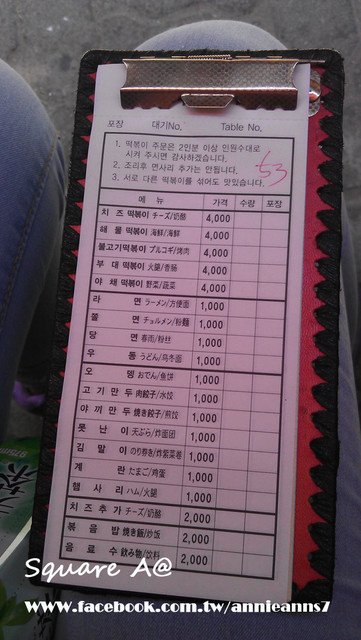 포장 대기No. Table No.
1. 떡볶이 주문은 2인분 이상 인원수대로
시켜 주시면 감사하겠습니다.
2. 조리후 면사리 추가는 안됩니다.
3. 서로 다른 떡볶이를 섞어도 맛있습니다.
53
메 뉴 가격 수량 포장
치 즈 떡볶이 チーズ/奶酪 4,000
해 물 떡볶이 海鮮/海鲜 4,000
불고기떡볶이 プルコギ/烤肉 4,000
부 대 떡볶이 火腿/香肠 4,000
야 채 떡볶이 野菜/蔬菜 4,000
라 면 ラーメン/方便面 1,000
쫄 면 チョルメン/粉麵 1,000
당 면 春雨/粉丝 1,000
우 동 うどん/乌冬面 1,000
오 뎅 おでん/鱼饼 1,000
고 기 만 두 肉餃子/水饺 1,000
야 끼 만 두 焼き餃子/煎饺 1,000
못 난 이 天ぷら/炸面团 1,000
김 말 이 のり巻き/炸紫菜卷 1,000
계 란 たまご/鸡蛋 1,000
햄 사 리 ハム/火腿 1,000
치 즈 추 가 チーズ/奶酪 2,000
볶 음 밥 焼き飯/炒饭 2,000
음 료 수 飲み物/饮料 2,000
Square A@
www.facebook.com.tw/annieanns7